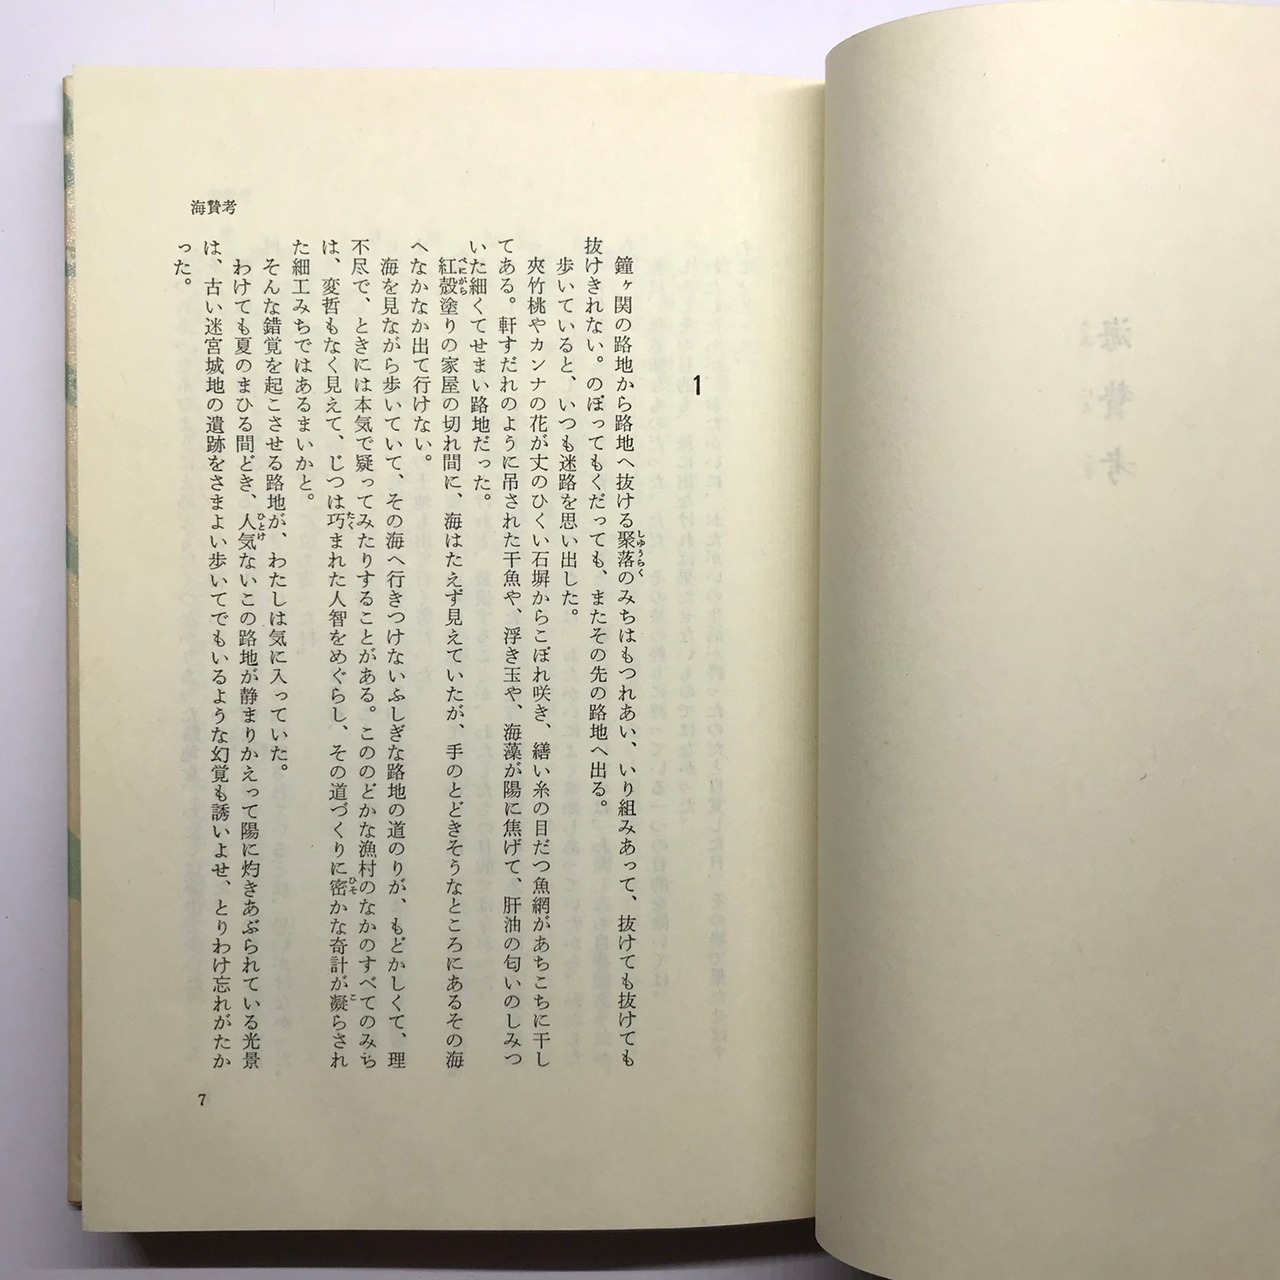 海贄考
1
鐘ヶ関の路地から路地へ抜ける聚落のみちはもつれあい、いり組みあって、抜けても抜けても
抜けきれない。のぼってもくだっても、またその先の路地へ出る。
歩いていると、いつも迷路を思い出した。
夾竹桃やカンナの花が丈のひくい石塀からこぼれ咲き、繕い糸の目だつ魚網があちこちに干し
てある。軒すだれのように吊された干魚や、浮き玉や、海藻が陽に焦げて、肝油の匂いのしみつ
いた細くてせまい路地だった。
紅殻塗りの家屋の切れ間に、海はたえず見えていたが、手のとどきそうなところにあるその海
へなかなか出て行けない。
海を見ながら歩いていて、その海へ行きつけないふしぎな路地の道のりが、もどかしくて、理
不尽で、ときには本気で疑ってみたりすることがある。こののどかな漁村のなかのすべてのみち
は、変哲もなく見えて、じつは巧まれた人智をめぐらし、その道づくりに密かな奇計が凝らされ
た細工みちではあるまいかと。
そんな錯覚を起こさせる路地が、わたしは気に入っていた。
わけても夏のまひる間どき、人気ないこの路地が静まりかえって陽に灼きあぶられている光景
は、古い迷宮城地の遺跡をさまよい歩いてでもいるような幻覚も誘いよせ、とりわけ忘れがたか
った。
海贄考
7